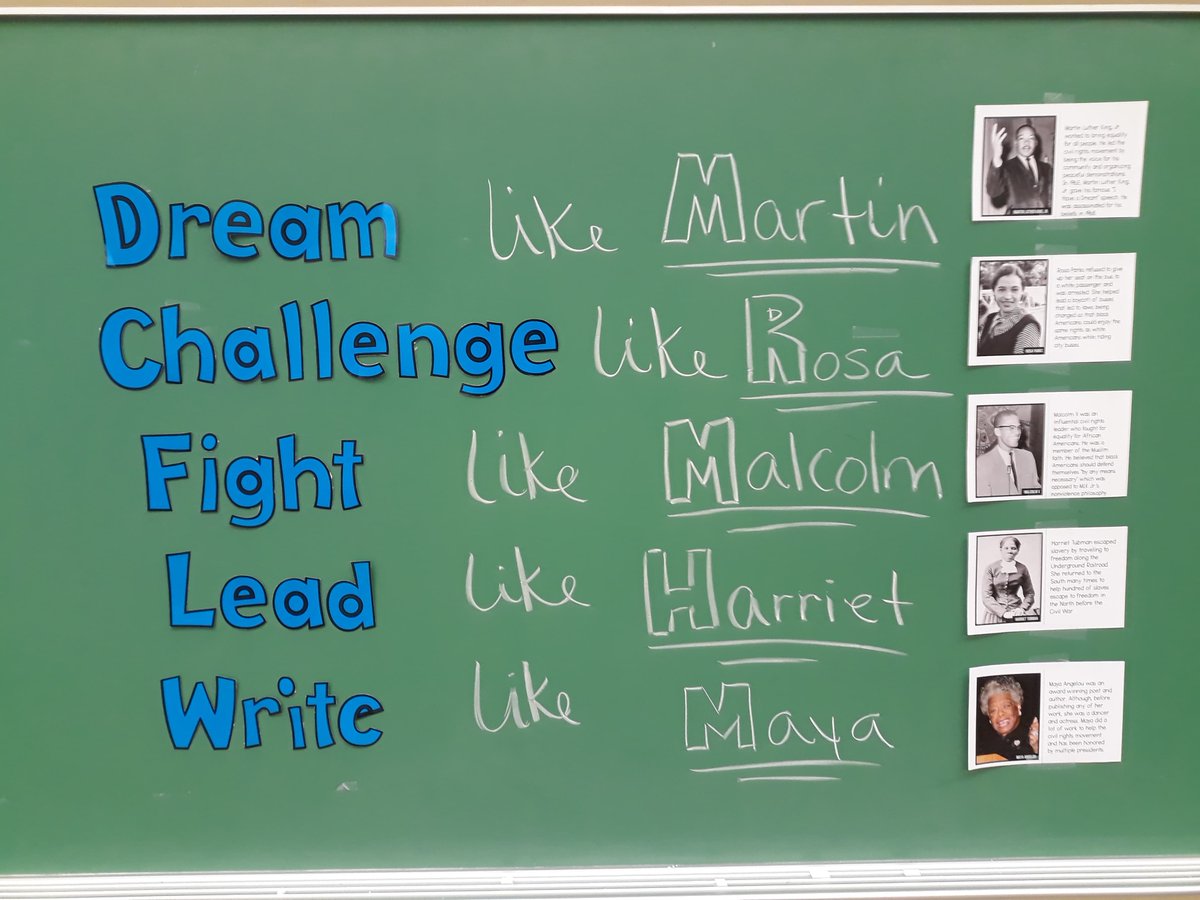 Dream like Martin
Martin Luther King, Jr.
worked to bring equality
for all people. He led the
civil rights movement by
being the voice for his
community and organizing
peaceful demonstrations.
In 1963, Martin Luther King,
Jr. gave his famous "I
Have a Dream" speech. He
was assassinated for his
beliefs in 1968.
MARTIN LUTHER KING, JR.
Challenge like Rosa
Rosa Parks refused to give
up her seat on the bus to
a white passenger and
was arrested. She helped
lead a boycott of buses
that led to laws being
changed so that black
Americans could enjoy the
same rights as white
Americans while riding
city buses.
ROSA PARKS
Fight like Malcolm
Malcolm X was an
influential civil rights
leader who fought for
equality for African
Americans. He was a
member of the Muslim
faith. He believed that black
Americans should defend
themselves "by any means
necessary" which was
opposed to MLK Jr.'s
nonviolence philosophy.
MALCOLM X
Lead like Harriet
Harriet Tubman escaped
slavery by traveling to
freedom along the
Underground Railroad.
She returned to the
South many times to
help hundred of slaves
escape to freedom in
the North before the
Civil War.
HARRIET TUBMAN
Write like Maya
Maya Angelou was an
award winning poet and
author. Although, before
publishing any of her
work, she was a dancer
and actress. Maya did a
lot of work to help the
civil rights movement
and has been honored
by multiple presidents.
MAYA ANGELOU